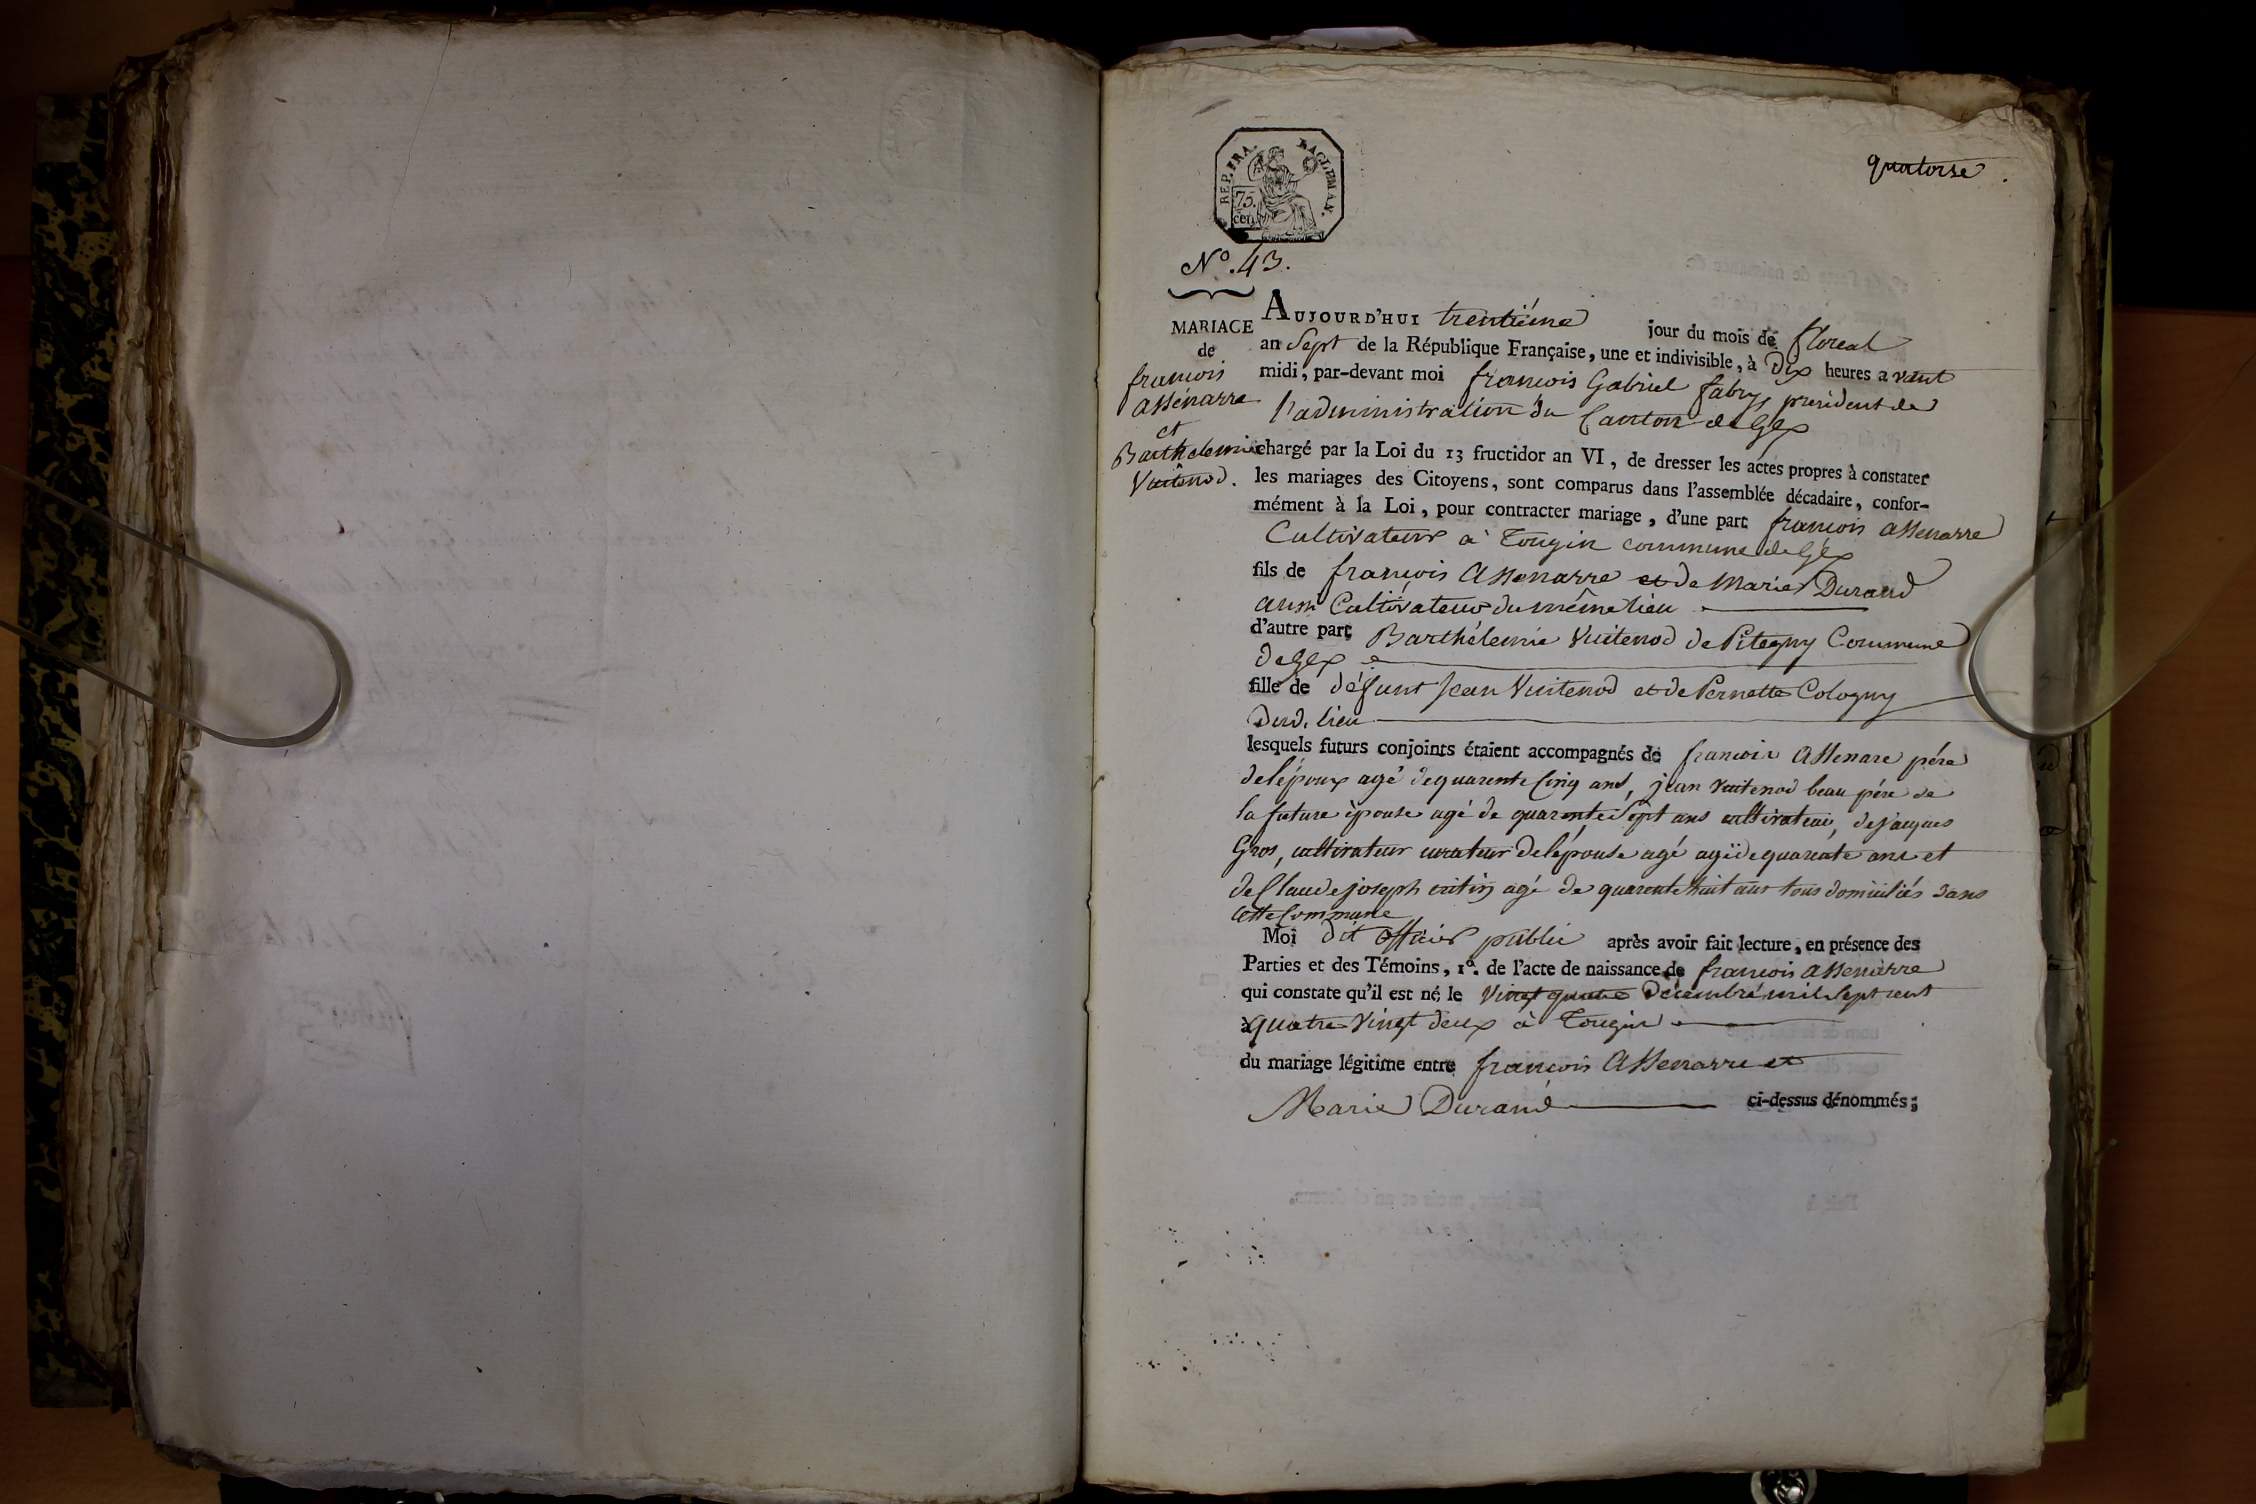 quatorse
REP. FRA. RAGLEMAN.
75.
cen.
N° . 43.
MARIAGE
de
francois
assénarre
et
Barthelemie
Vuitenod.
AUJOURD'HUI trentiéme jour du mois de floreal
an Sept de la République Française, une et indivisible, à Dix heures a vant
midi, par-devant moi francois Gabriel fabry president de
l'administration du Canton de Gex
chargé par la Loi du 13 fructidor an VI, de dresser les actes propres à constater
les mariages des Citoyens, sont comparus dans l'assemblée décadaire, confor-
mément à la Loi, pour contracter mariage, d'une part francois assenarre
Cultivateur à Tougin commune de Gex
fils de françois Assenarre et de Marie Durand
aussi Cultivateur du même lieu
d'autre part Barthélemie Vuitenod de Pitegny Commune
de Gex
fille de défunt Jean Vuitenod et de Pernette Cologny
dud. lieu
lesquels futurs conjoints étaient accompagnés de francois Assenare pére
de lépoux agé de quarente Cinq ans, jean vuitenod beau pére de
la future épouse agé de quarente Sept ans cultivateur, de jacques
Gros, cultivateur curateur de lépouse agé agé de quarente ans et
de Claude joseph agé de quarente huit ans tous domiciliés dans
cette Commune
Moi dit officier public après avoir fait lecture, en présence des
Parties et des Témoins, 1°. de l'acte de naissance de francois Assenarre
qui constate qu'il est né le Vingt quatre Décembre mil Sept cent
quatre Vingt deux à Tougin
du mariage légitime entre françois Assenarre et
Marie Durand ci-dessus dénommés;